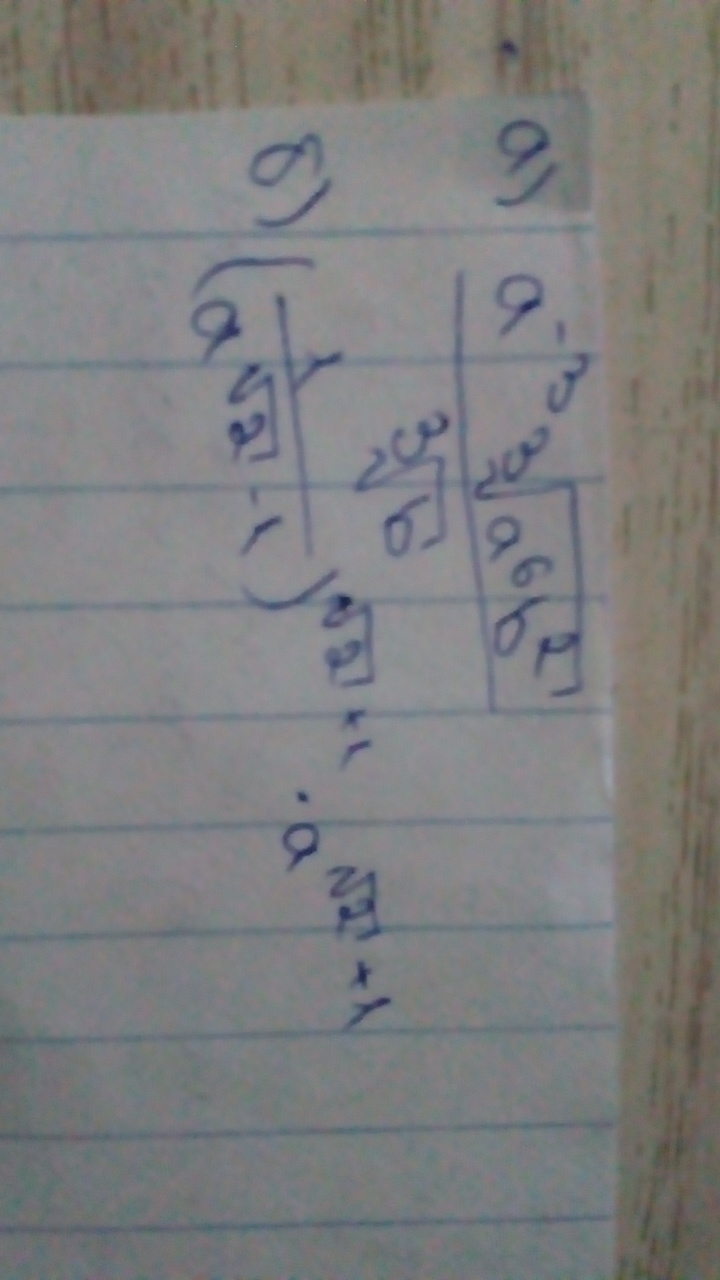 а) a⁻³ ∛(a⁶b²) / ∛b
б) (1 / a^(√2 - 1))^(√2 + 1) · a^(√2 + 1)